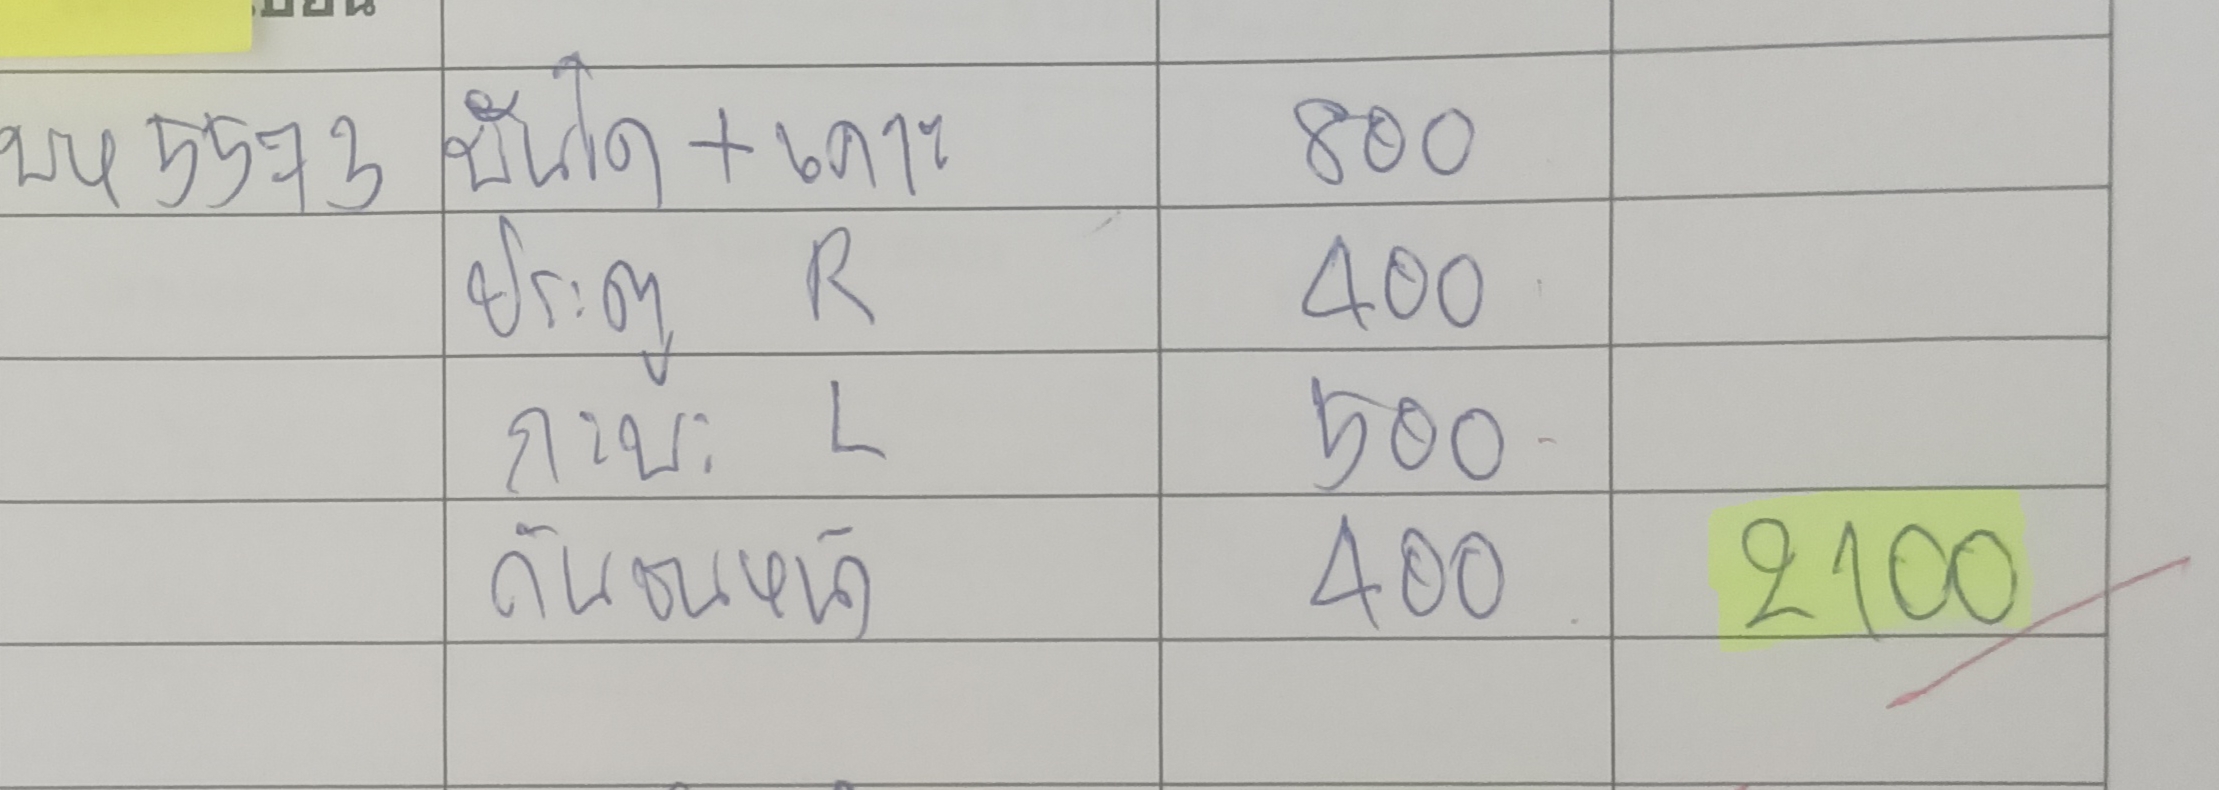 บห 5573 บันได + เคาะ 800
ประตู R 400
กะบะ L 500
กันชนหน้า 400 2100